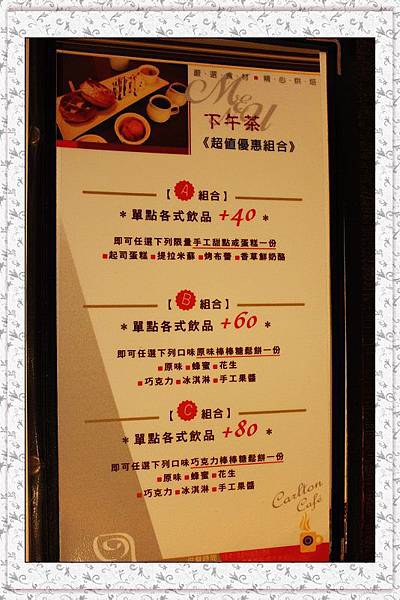 嚴‧選‧食‧材■精‧心‧烘‧焙
MENU
下午茶
《超值優惠組合》
【A組合】
＊單點各式飲品 +40 ＊
即可任選下列限量手工甜點或蛋糕一份
■起司蛋糕■提拉米蘇■烤布蕾■香草鮮奶酪
【B組合】
＊單點各式飲品 +60 ＊
即可任選下列口味原味棒棒糖鬆餅一份
■原味■蜂蜜■花生
■巧克力■冰淇淋■手工果醬
【C組合】
＊單點各式飲品 +80 ＊
即可任選下列口味巧克力棒棒糖鬆餅一份
■原味■蜂蜜■花生
■巧克力■冰淇淋■手工果醬
Carlton
Café